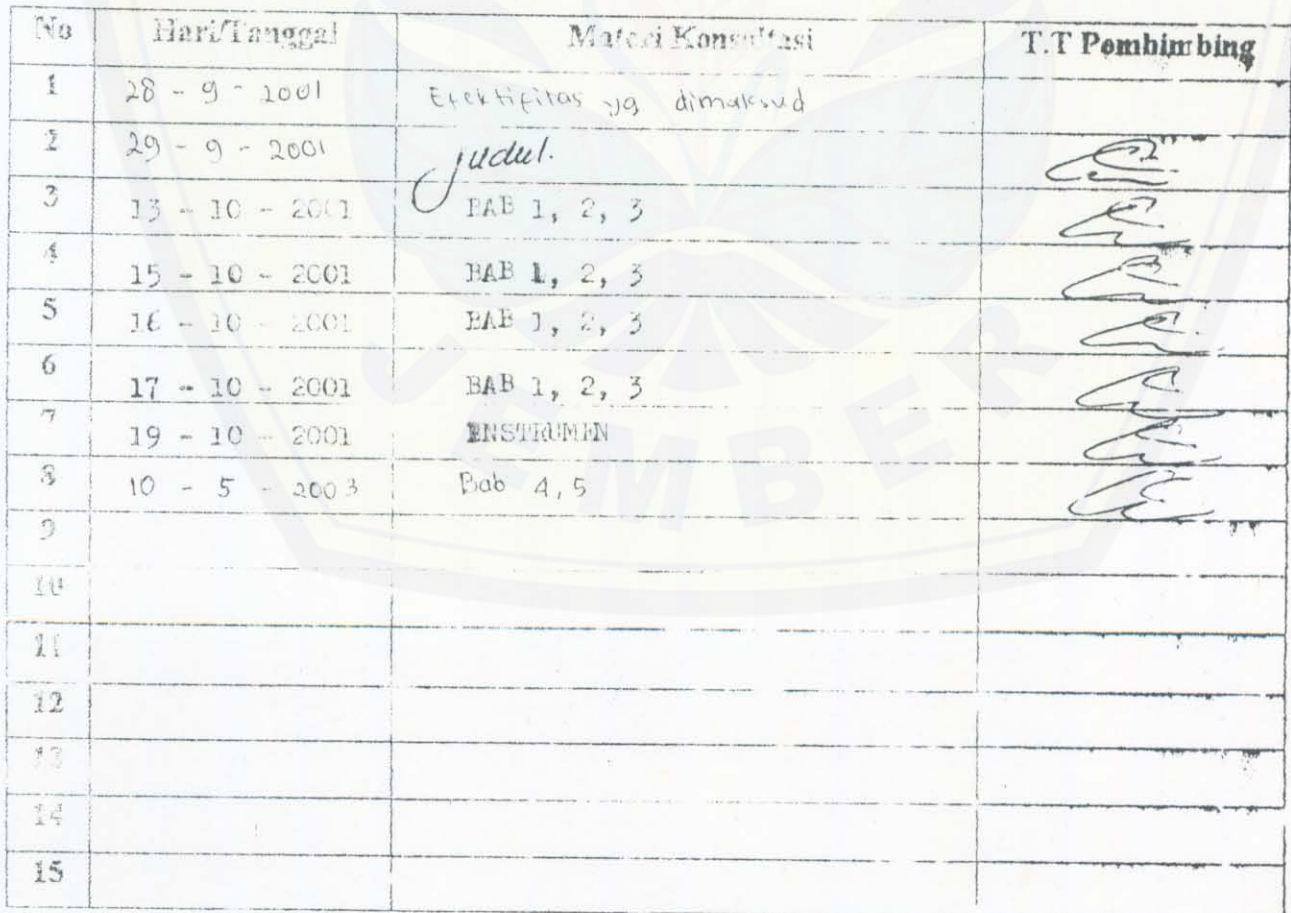 No Hari/Tanggal Materi Konsultasi T.T Pembimbing
1 28 - 9 - 2001 Efektifitas yg dimaksud
2 29 - 9 - 2001 judul.
3 13 - 10 - 2001 BAB 1, 2, 3
4 15 - 10 - 2001 BAB 1, 2, 3
5 16 - 10 - 2001 BAB 1, 2, 3
6 17 - 10 - 2001 BAB 1, 2, 3
7 19 - 10 - 2001 INSTRUMEN
8 10 - 5 - 2003 Bab 4, 5
9
10
11
12
13
14
15
JEMBER